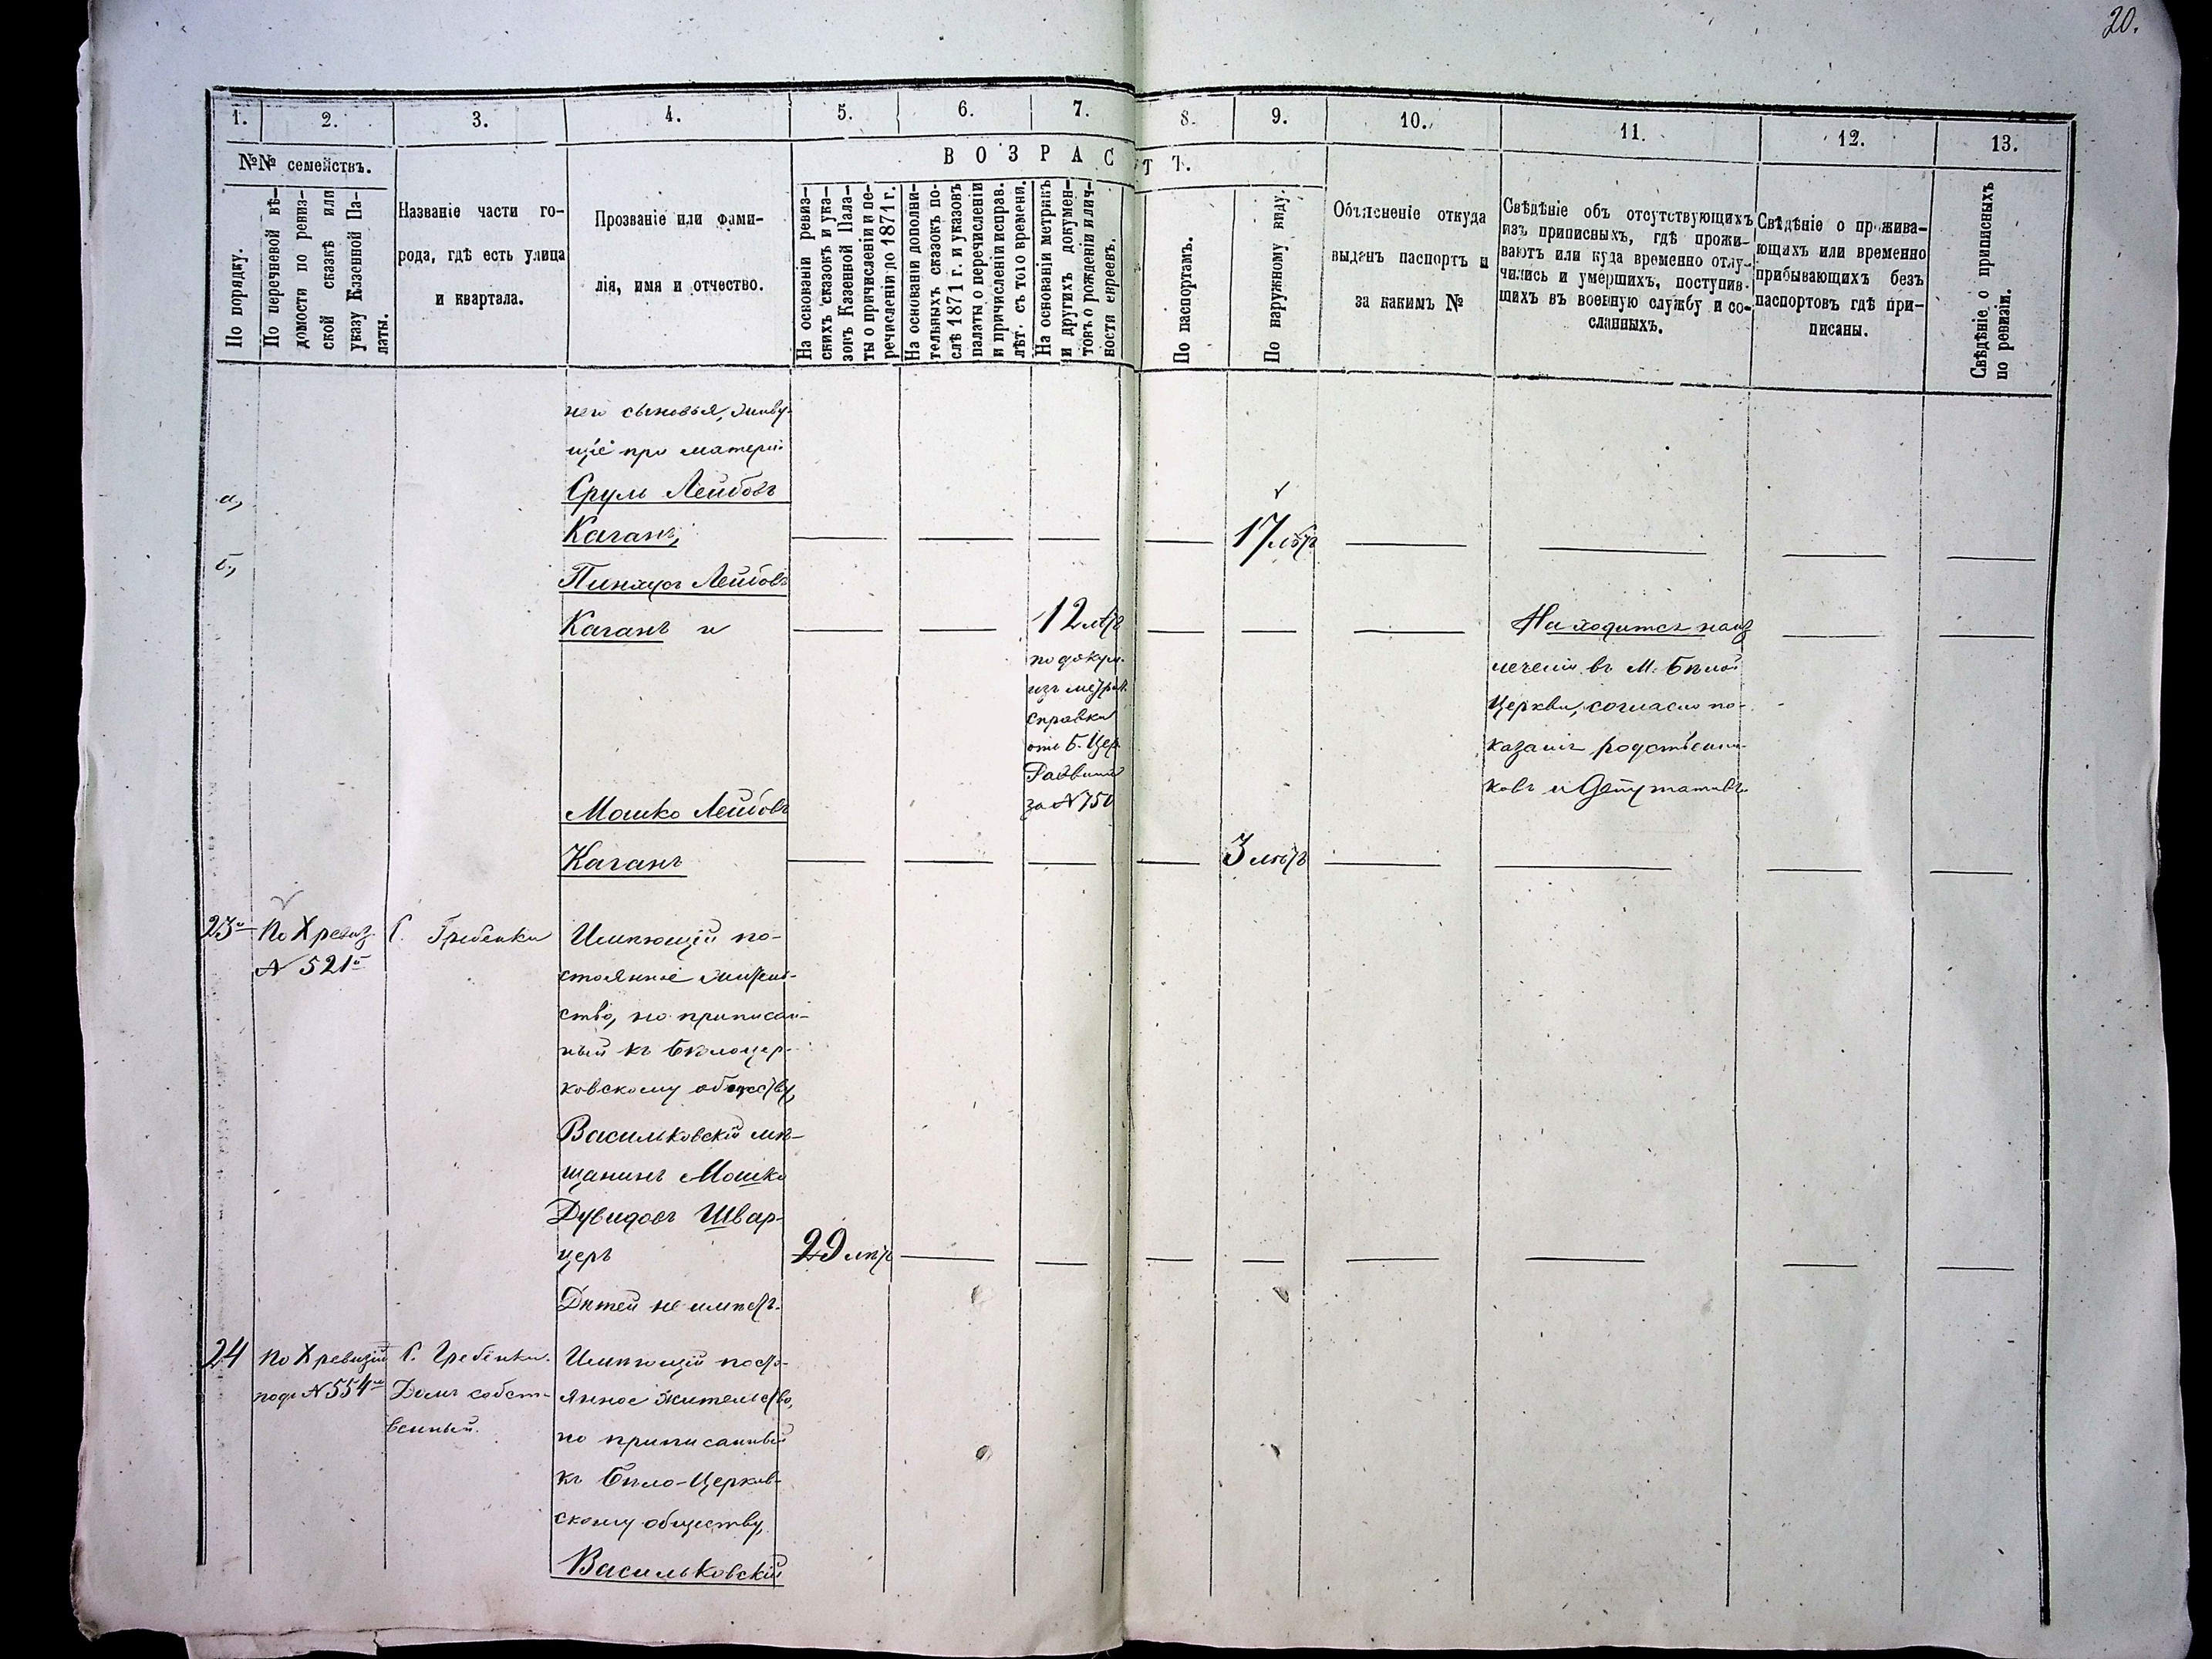 20.
1. 2. 3. 4. 5. 6. 7. 8. 9. 10. 11. 12. 13.
№№ семействъ.
ВОЗРАСТЪ.
По порядку.
По перечневой вѣ-
домости по ревиз-
ской сказкѣ или
указу Казенной Па-
латы.
Названіе части го-
рода, гдѣ есть улица
и квартала.
Прозваніе или фами-
лія, имя и отчество.
На основаніи ревиз-
скихъ сказокъ и ука-
зокъ Казенной Пала-
ты о причисленіи и пе-
речисленіи до 1871 г.
На основаніи дополни-
тельныхъ сказокъ по-
слѣ 1871 г. и указовъ
палаты о перечисленіи
и причисленіи исправ.
лѣт. съ того времени.
На основаніи метрикъ
и другихъ докумен-
товъ о рожденіи и лич-
ности евреевъ.
По паспортамъ.
По наружному виду.
Объясненіе откуда
выданъ паспортъ и
за какимъ №
Свѣдѣніе объ отсутствующихъ
изъ приписныхъ, гдѣ прожи-
ваютъ или куда временно отлу-
чились и умершихъ, поступив-
шихъ въ военную службу и со-
сланныхъ.
Свѣдѣніе о прожива-
ющихъ или временно
прибывающихъ безъ
паспортовъ гдѣ при-
писаны.
Свѣдѣніе о приписныхъ
по ревизіи.
него сыновья, живу-
щіе при матери:
а, Сруль Лейбовъ
Каганъ, 17 лѣтъ
б, Пинхусъ Лейбовъ
Каганъ и 12 лѣтъ
по докум.
изъ метрич.
справки
отъ Б. Цер.
Раввина
за № 750
Находится на из
леченіи въ М. Бѣлой
Церкви, согласно по-
казанія родственни-
ковъ и Депутатовъ
Мошко Лейбовъ
Каганъ 3 лѣтъ
23й По X ревиз. С. Гребенки Имѣющій по-
№ 521й стоянное житель-
ство, но приписан-
ный къ Бѣлоцер-
ковскому обществу,
Васильковскій мѣ-
щанинъ Мошко
Дувидовъ Швар-
церъ 29 лѣтъ
Дѣтей не имѣетъ.
24 По X ревизіи С. Гребенки. Имѣющій посто-
подъ № 554м Домъ собст- янное жительство,
венный. но приписанный
къ Бѣло-Церков-
скому обществу,
Васильковскій